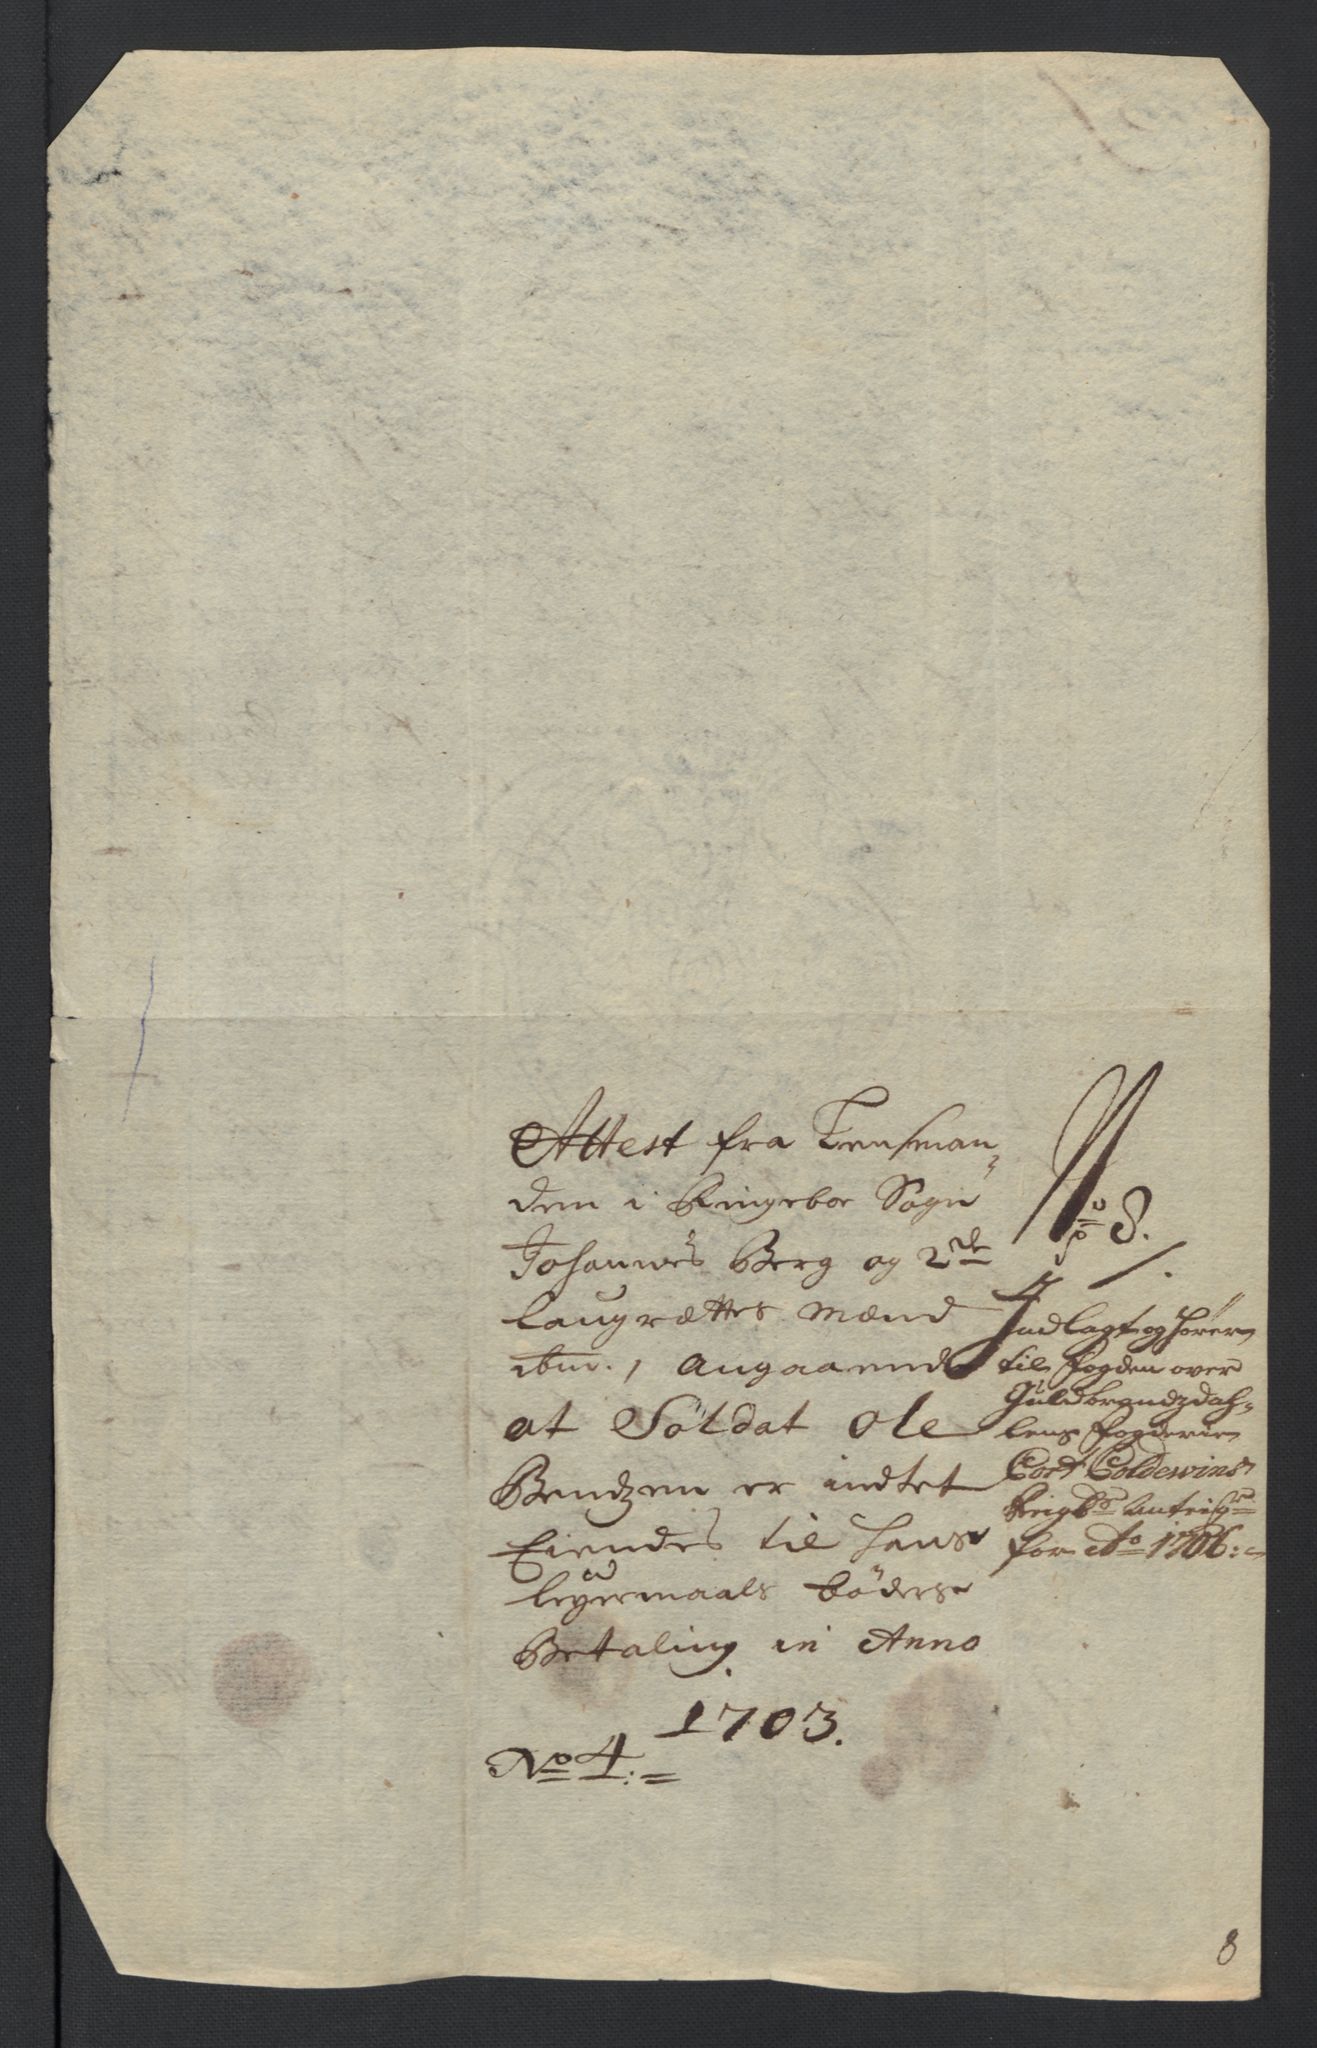 Attest fra Lensman,,
den i Ringeboe Sogn
Johannes Berg og 2de
laugrættes mænd
ibm., angaaende
at Soldat Ole
Bendzen er indtet
Eiendes til hans
leyermaals böders
Betaling in Anno
1703.
No 4:=
No 8.
Indlagt og hörer
til fogden over
Guldbrandzdah=
lens fogderie
Cort Coldewins
for Ao 1706:=
8